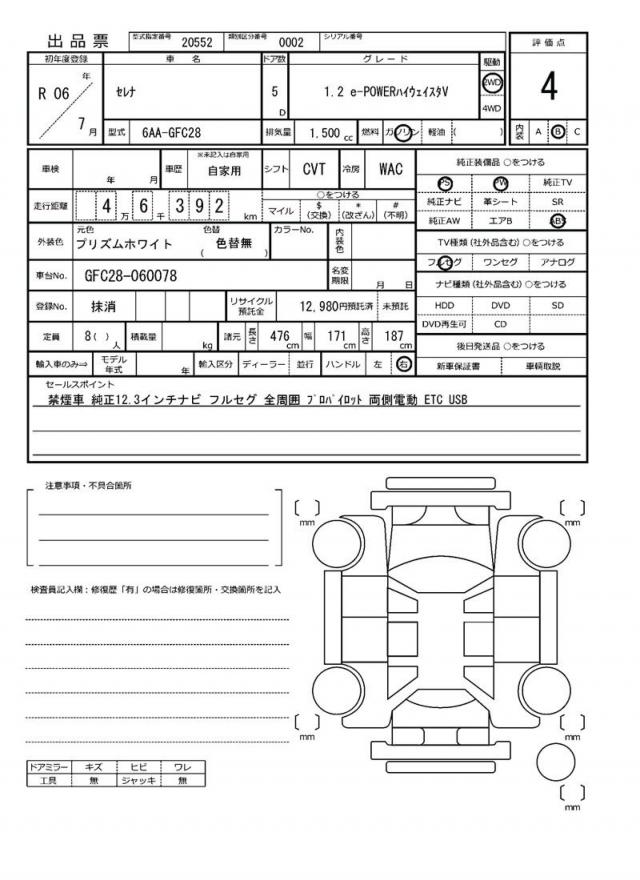 出品票 型式指定番号 20552 類別区分番号 0002 シリアル番号
初年度登録 車名 ドア数 グレード 駆動 評価点
R 06 年 7月 セレナ 5 D 1.2 e-POWERハイウェイスタV 2WD 4WD 4
型式 6AA-GFC28 排気量 1.500 cc 燃料 ガソリン 軽油 ( ) 内装 A B C
車検 年 月 車歴 ※未記入は自家用 自家用 シフト CVT 冷房 WAC
走行距離 4万 6千 392 km ○をつける マイル $(交換) *(改ざん) #(不明)
外装色 元色 プリズムホワイト 色替 ( 色替無 ) カラーNo. 内装色
車台No. GFC28-060078 名変期限 月 日
登録No. 抹消 リサイクル預託金 12,980円預託済 未預託
定員 8( )人 積載量 kg 諸元 長さ 476cm 幅 171cm 高さ 187cm
輸入車のみ⇒ モデル年式 年 輸入区分 ディーラー 並行 ハンドル 左 右
純正装備品 ○をつける
PS PW 純正TV
純正ナビ 革シート SR
純正AW エアB ABS
TV種類(社外品含む) ○をつける
フルセグ ワンセグ アナログ
ナビ種類(社外品含む) ○をつける
HDD DVD SD
DVD再生可 CD
後日発送品 ○をつける
新車保証書 車輌取説
セールスポイント
禁煙車 純正12.3インチナビ フルセグ 全周囲 プロパイロット 両側電動 ETC USB
注意事項・不具合箇所
検査員記入欄:修復歴「有」の場合は修復箇所・交換箇所を記入
ドアミラー キズ ヒビ ワレ
工具 無 ジャッキ 無
mm
mm
mm
mm
mm